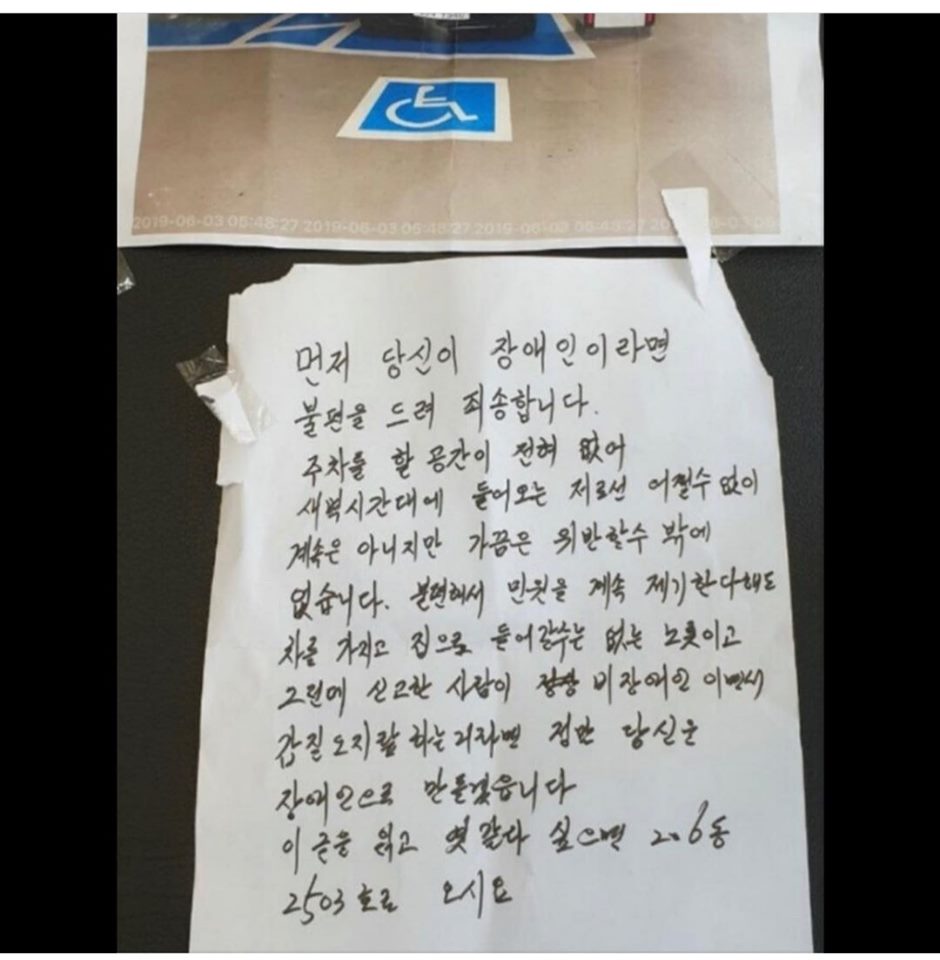 2019-06-03 06:48:27 2019-06-03 06:48:27 2019-06-03 06:48:27 2019-06-03 06
먼저 당신이 장애인이라면
불편을 드려 죄송합니다.
주차를 할 공간이 전혀 없어
새벽시간대에 들어오는 저로선 어쩔수없이
계속은 아니지만 가끔은 위반할수 밖에
없습니다. 불편해서 민원을 계속 제기한다해도
차를 가지고 집으로 들어갈수는 없는 노릇이고
그런데 신고한 사람이 비장애인 이면서
갑질 오지랖 하는거라면 당신을
장애인으로 만들겠습니다
이 글을 읽고 엿같다 싶으면 206동
2503호로 오시요